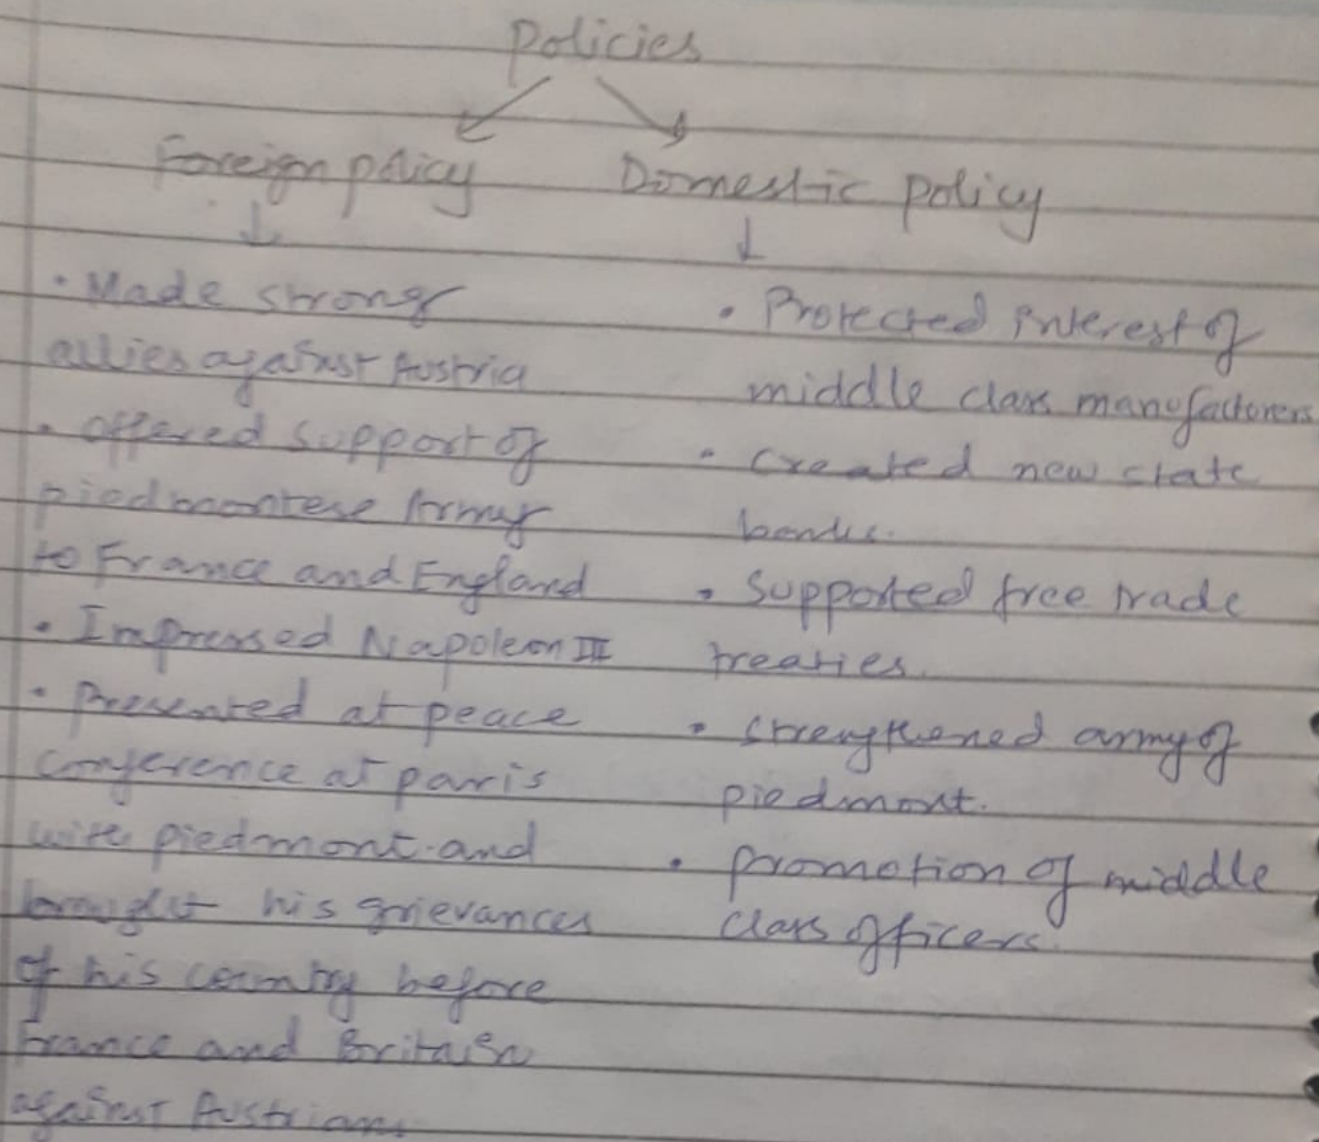 Policies
Foreign policy
↓
• Made strong
allies against Austria
• offered support of
piedmontese Army
to France and England
• Impressed Napoleon III
• Presented at peace
conference at paris
with piedmont and
brought his grievances
of his country before
France and Britain
against Austrians
Domestic policy
↓
• Protected interest of
middle class manufacturers
• created new state
banks.
• Supported free trade
treaties.
• Strengthened army of
piedmont.
• promotion of middle
class officers.